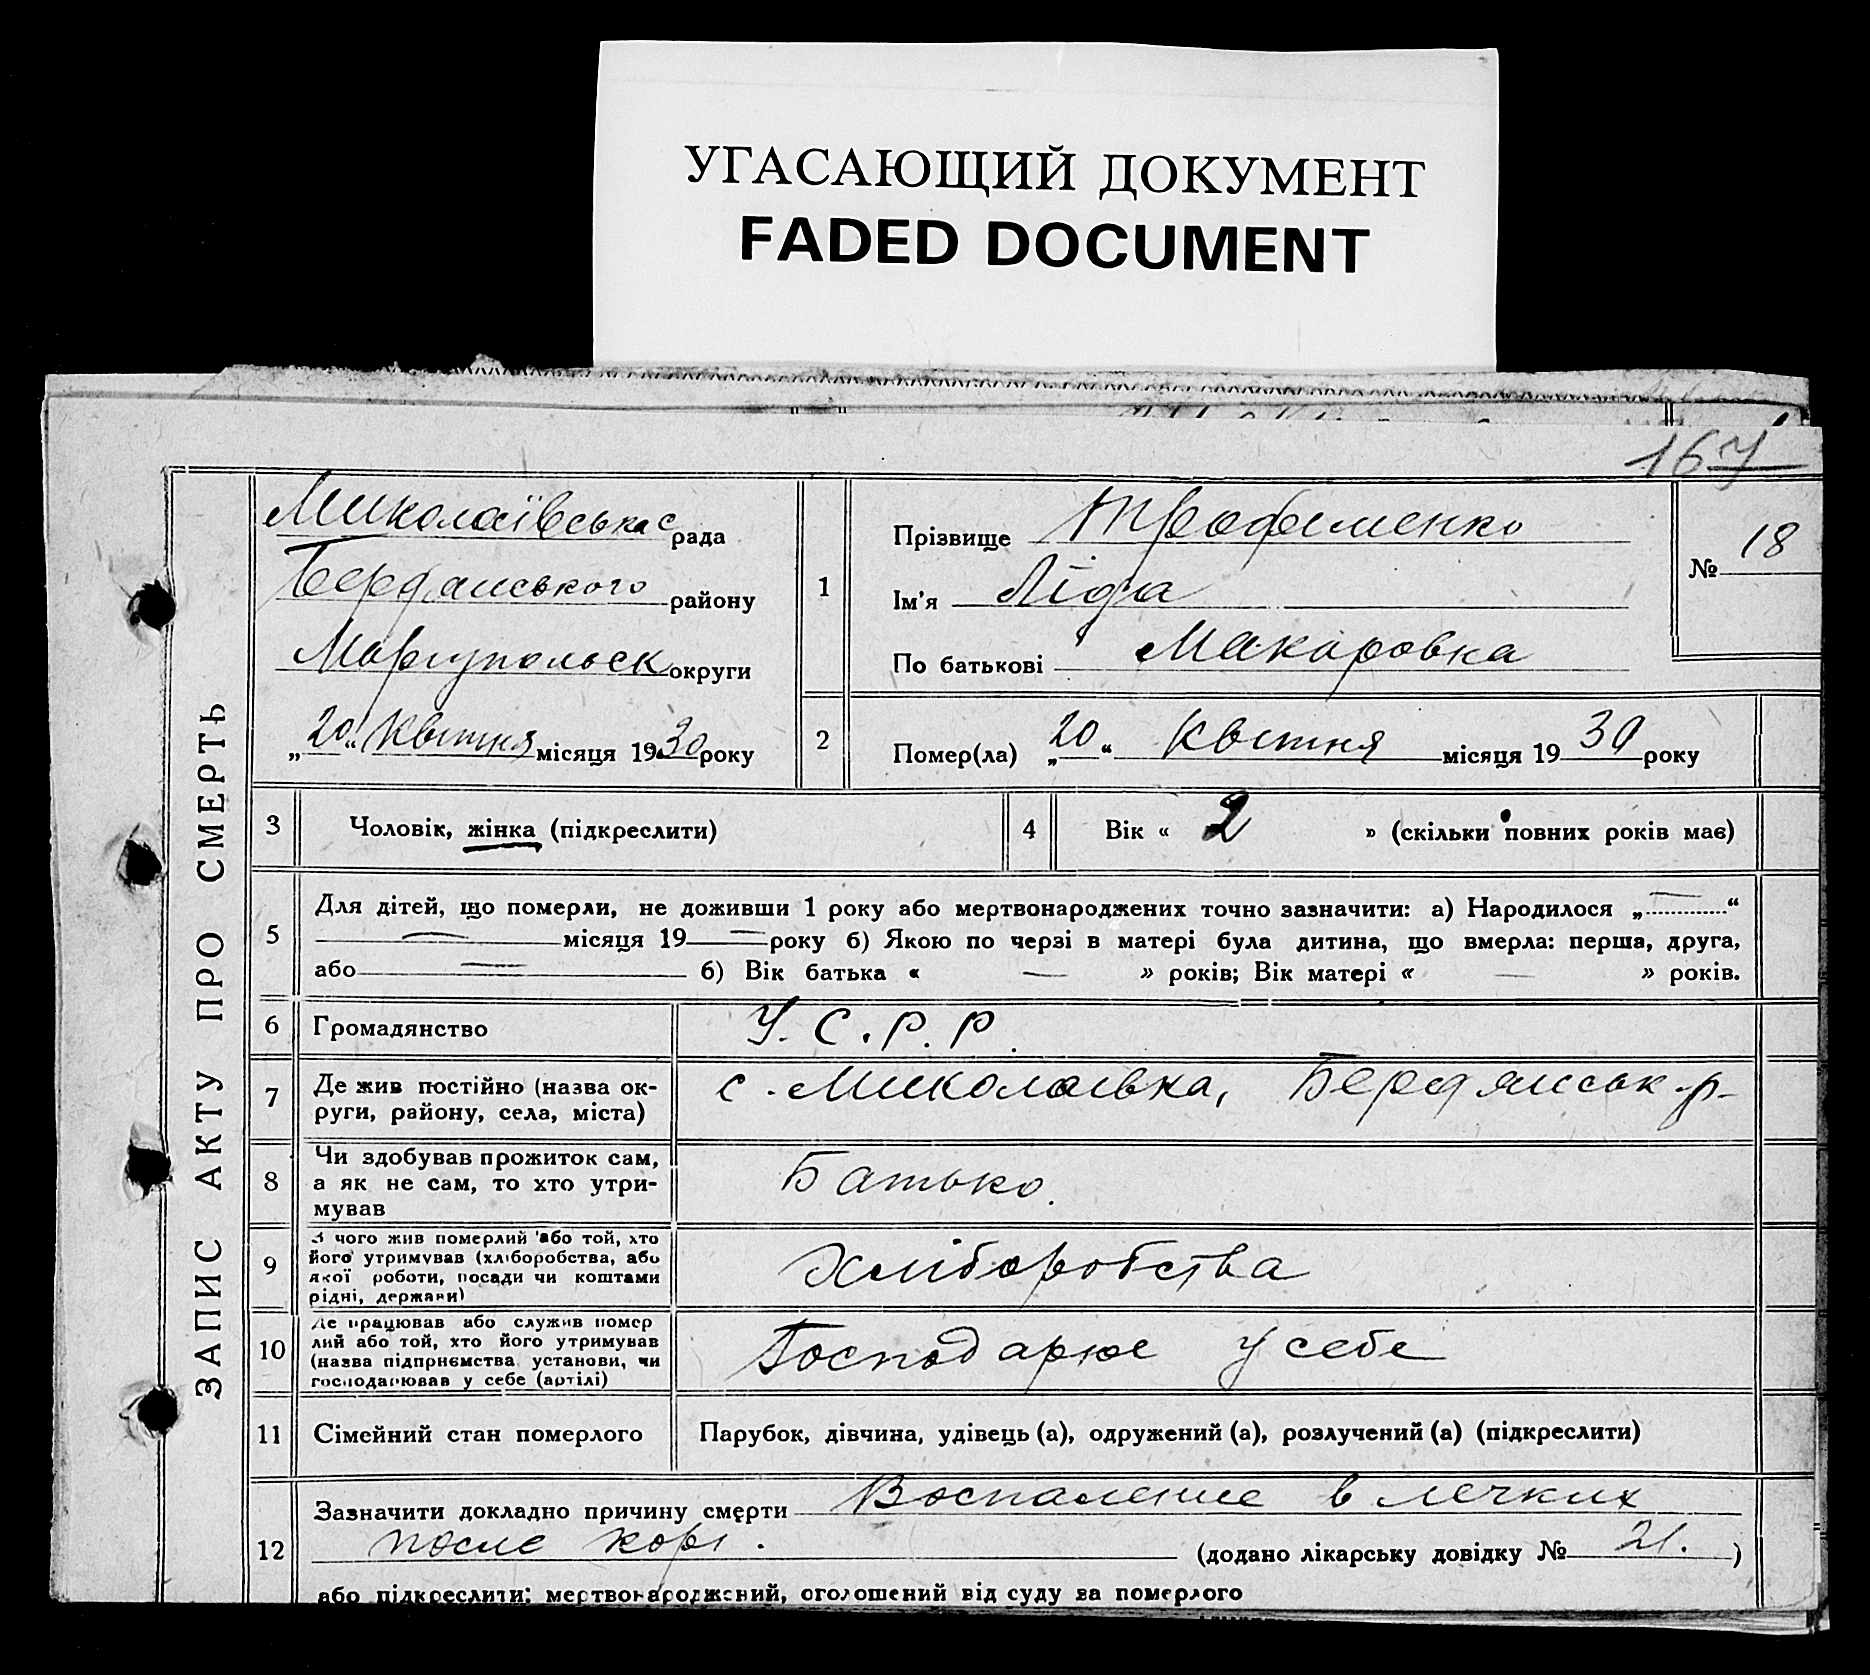 УГАСАЮЩИЙ ДОКУМЕНТ
FADED DOCUMENT
167
ЗАПИС АКТУ ПРО СМЕРТЬ
Миколаївська с рада
Бердянського району
Маріупольськ округи
„20“ Квітня місяця 1930 року
1
Прізвище Трофименко
Ім'я Ліда
По батькові Макаровка
№ 18
2
Помер(ла) „20“ Квітня місяця 1930 року
3 Чоловік, жінка (підкреслити)
4 Вік « 2 » (скільки повних років має)
5
Для дітей, що померли, не доживши 1 року або мертвонароджених точно зазначити: а) Народилося „—“
— місяця 19 — року б) Якою по черзі в матері була дитина, що вмерла: перша, друга,
або — б) Вік батька « — » років; Вік матері « — » років.
6 Громадянство У.С.Р.Р.
7
Де жив постійно (назва ок-
руги, району, села, міста)
с. Миколаівка, Бердянськ. р-
8
Чи здобував прожиток сам,
а як не сам, то хто утри-
мував
Батько.
9
З чого жив померлий або той, хто
його утримував (хліборобства, або
якої роботи, посади чи коштами
рідні, держави)
Хліборобства
10
Де працював або служив помер
лий або той, хто його утримував
(назва підприємства установи, чи
господарював у себе (артілі)
Господарює у себе
11 Сімейний стан померлого Парубок, дівчина, удівець (а), одружений (а), розлучений (а) (підкреслити)
12
Зазначити докладно причину смерти Воспаление в легких
после корі. (додано лікарську довідку № 21.)
або підкреслити: мертвонароджений, оголошений від суду за померлого